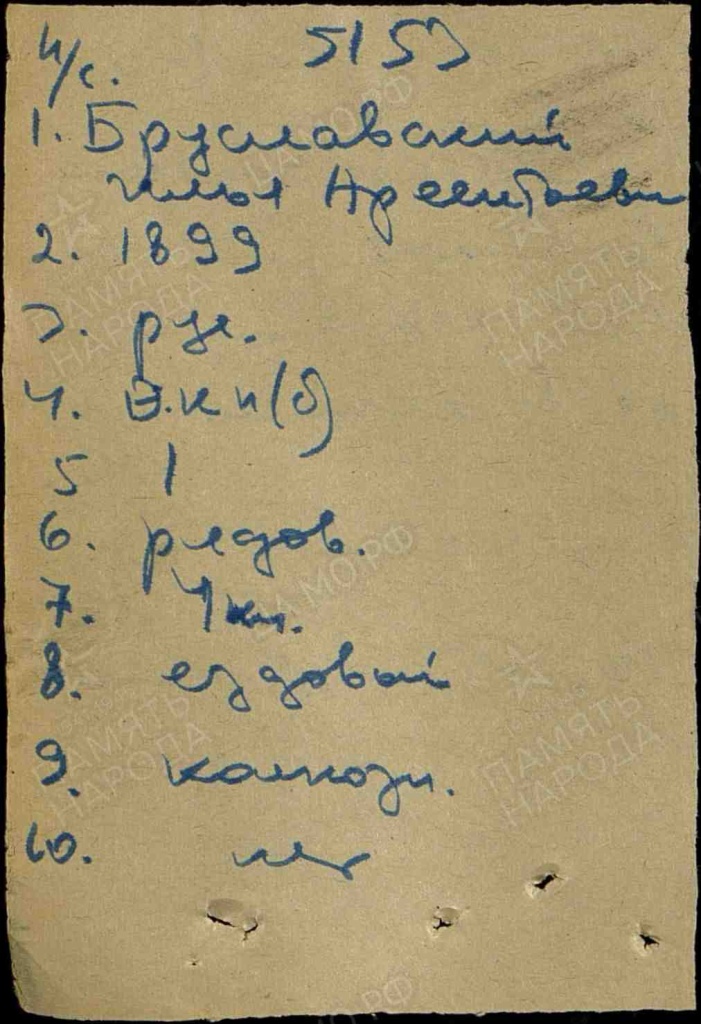 н/с. 5153
1. Бруславский
Илья Арсентьеви
2. 1899
3. рус.
4. В.К П(б)
5 1
6. рядов.
7. 4 кл.
8. ездовый
9. колхозн.
10. нет
ПАМЯТЬ НАРОДА
ЦАМО.РФ